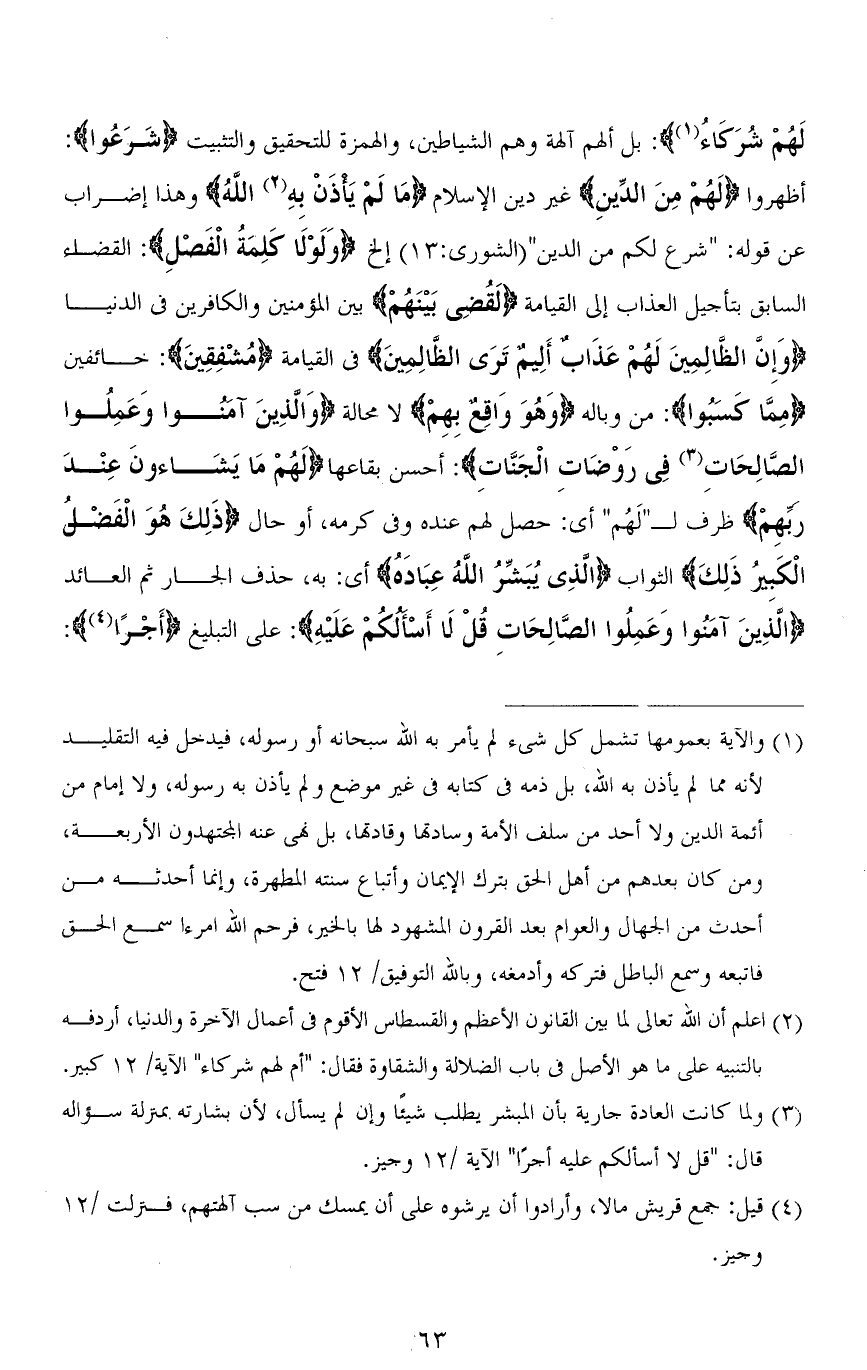 لَهُمْ شُرَكَاءُ(١)﴾: بل ألهم آلهة وهم الشياطين، والهمزة للتحقيق والتثبيت ﴿شَرَعُوا﴾:
أظهروا ﴿لَهُمْ مِنَ الدِّينِ﴾ غير دين الإسلام ﴿مَا لَمْ يَأْذَنْ بِهِ(٢) اللَّهُ﴾ وهذا إضراب
عن قوله: "شرع لكم من الدين"(الشورى:١٣) إلخ ﴿وَلَوْلَا كَلِمَةُ الْفَصْلِ﴾: القضاء
السابق بتأجيل العذاب إلى القيامة ﴿لَقُضِى بَيْنَهُمْ﴾ بين المؤمنين والكافرين فى الدنيا
﴿وَإِنَّ الظَّالِمِينَ لَهُمْ عَذَابٌ أَلِيمٌ تَرَى الظَّالِمِينَ﴾ فى القيامة ﴿مُشْفِقِينَ﴾: خائفين
﴿مِمَّا كَسَبُوا﴾: من وباله ﴿وَهُوَ وَاقِعٌ بِهِمْ﴾ لا محالة ﴿وَالَّذِينَ آمَنُوا وَعَمِلُوا
الصَّالِحَاتِ(٣) فِى رَوْضَاتِ الْجَنَّاتِ﴾: أحسن بقاعها ﴿لَهُمْ مَا يَشَاءونَ عِنْدَ
رَبِّهِمْ﴾ ظرف لـ"لَهُم" أى: حصل لهم عنده وفى كرمه، أو حال ﴿ذَلِكَ هُوَ الْفَضْلُ
الْكَبِيرُ ذَلِكَ﴾ الثواب ﴿الَّذِى يُبَشِّرُ اللَّهُ عِبَادَهُ﴾ أى: به، حذف الجار ثم العائد
﴿الَّذِينَ آمَنُوا وَعَمِلُوا الصَّالِحَاتِ قُلْ لَا أَسْأَلُكُمْ عَلَيْهِ﴾: على التبليغ ﴿أَجْرًا(٤)﴾:
(١) والآية بعمومها تشمل كل شىء لم يأمر به الله سبحانه أو رسوله، فيدخل فيه التقليد
لأنه مما لم يأذن به الله، بل ذمه فى كتابه فى غير موضع ولم يأذن به رسوله، ولا إمام من
أئمة الدين ولا أحد من سلف الأمة وسادتها وقادتها، بل نهى عنه المجتهدون الأربعة،
ومن كان بعدهم من أهل الحق بترك الإيمان وأتباع سنته المطهرة، وإنما أحدثه من
أحدث من الجهال والعوام بعد القرون المشهود لها بالخير، فرحم الله امرءا سمع الحق
فاتبعه وسمع الباطل فتركه وأدمغه، وبالله التوفيق/ ١٢ فتح.
(٢) اعلم أن الله تعالى لما بين القانون الأعظم والقسطاس الأقوم فى أعمال الآخرة والدنيا، أردفه
بالتنبيه على ما هو الأصل فى باب الضلالة والشقاوة فقال: "أم لهم شركاء" الآية/ ١٢ كبير.
(٣) ولما كانت العادة جارية بأن المبشر يطلب شيئًا وإن لم يسأل، لأن بشارته بمنزلة سؤاله
قال: "قل لا أسألكم عليه أجرًا" الآية /١٢ وجيز.
(٤) قيل: جمع قريش مالا، وأرادوا أن يرشوه على أن يمسك من سب آلهتهم، فنزلت /١٢
وجيز.
٦٣